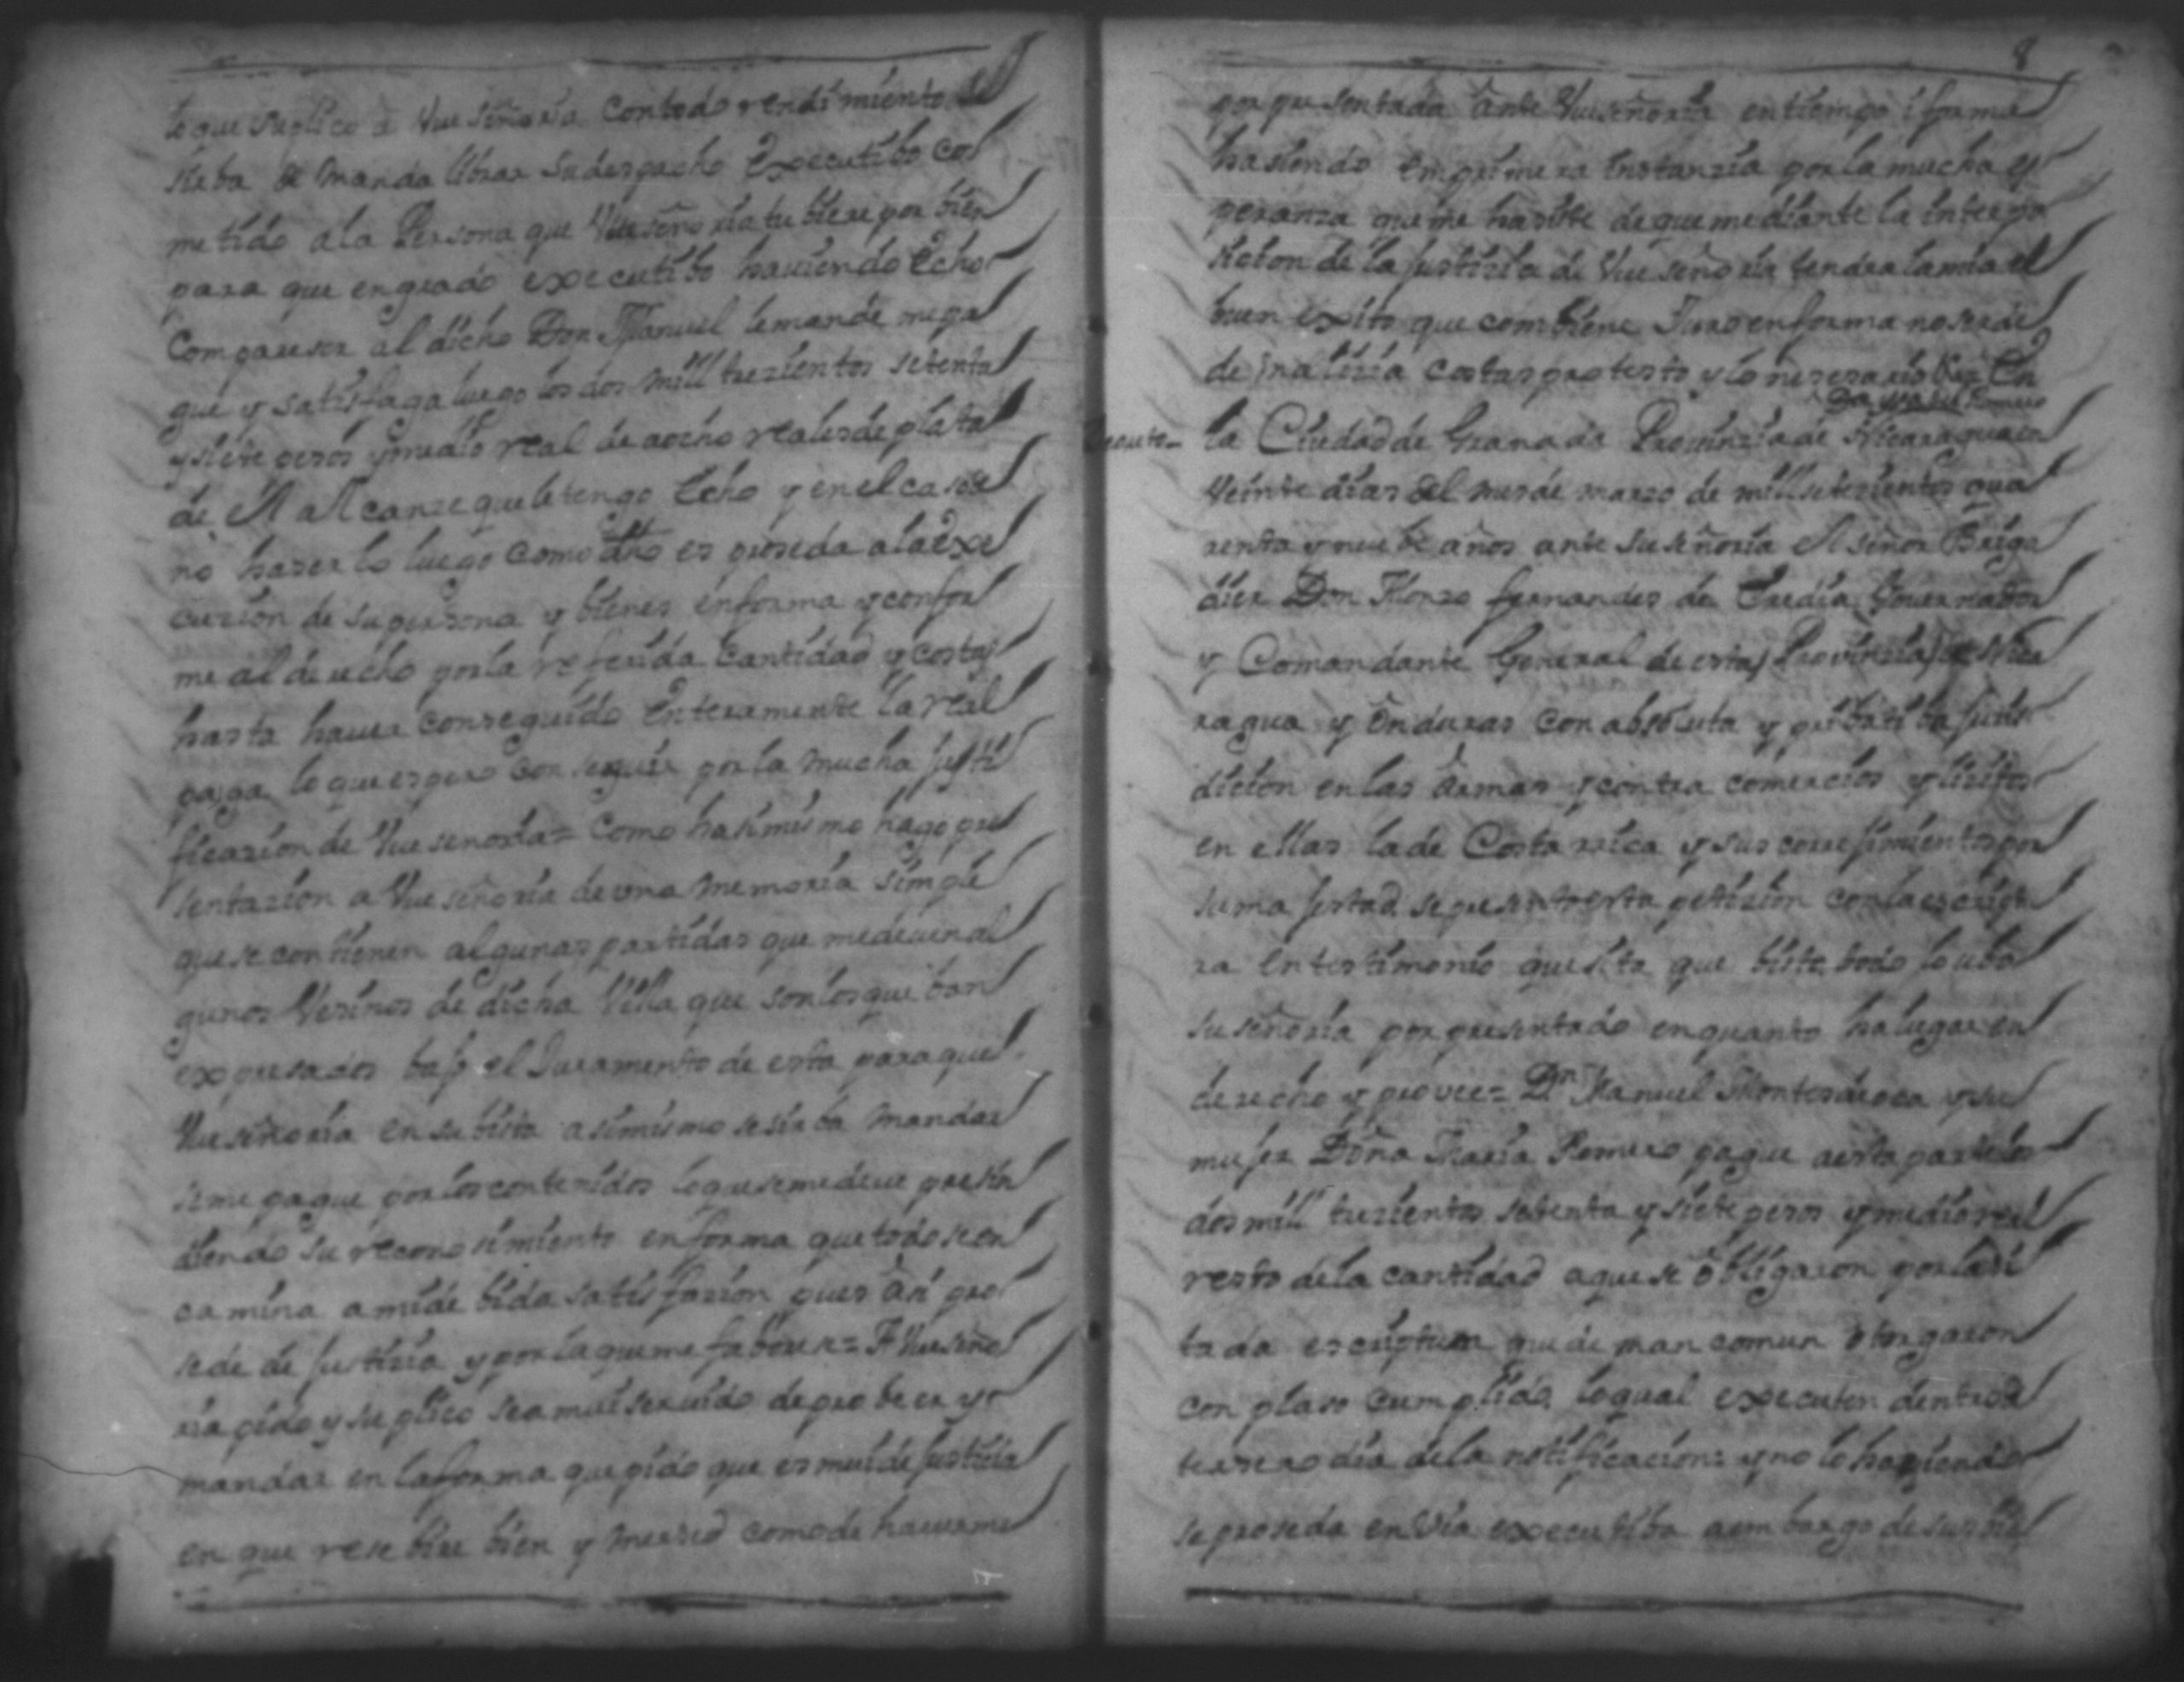 lo que suplico a Vueseñoria con todo rendimiento se
sirba de mandar librar su despacho Executibo co
metido a la Persona que Vueseñoria tubiere por bien
para que en grado executibo haviendo Echo
Compareser al dicho Don Manuel le mande me pa
gue y satisfaga luego los dos mill trezientos setenta
y siete pesos y medio real de a ocho reales de plata
de el Alcanze que le tengo Echo y en el caso de
no hazerlo luego como dho es proseda a la Exe
cuzion de su persona y bienes en forma y confor
me al derecho por la referida cantidad y costas
hasta haver conseguido Enteramente la real
paga lo que espero conseguir por la mucha justi
ficazion de Vueseñoria = Como hasimismo hago pre
sentazion a Vueseñoria de una Memoria simple
que se contienen algunas partidas que me deven al
gunos Vesinos de dicha Villa que son los que ban
expresados bajo el Juramento de esta para que
Vueseñoria en su bista asimismo se sirba mandar
se me pague por los contenidos lo que se me deve presi
diendo su reconosimiento en forma que todo se en
camina a mi debida satisfazion pues asi pro
sede de justizia y por la que me faborese = A Vueseño
ria pido y suplico sea mui servido de probeer y
mandar en la forma que pido que es mui de justicia
en que resebire bien y merced como de haverme
8
por presentada ante Vueseñoria en tiempo i forma
hasiendo Em primera instanzia por la mucha es
peranza que me hasiste de que mediante la interpo
sicion de la justizia de Vueseñoria tendra la mia el
buen exito que combiene Juro en forma no ser de
de malizia costas protesto y lo nesesario En
Decreto - la Ciudad de Granada Provinzia de Nicaragua en
Veinte dias del mes de marzo de mill setezientos qua
renta y nuebe años ante su señoria el señor Briga
dier Don Alonzo fernandes de Eredia Governador
y Comandante General de esta Provinzia de Nica
ragua y Onduras con absoluta y pribatiba juris
dicion en las armas y contra comercios ylizitos
en ellas la de Costa rrica y sus correjimientos por
su ma jestad se presento esta petizion con la escriptu
ra en testimonio que sita que bisto todo lo ubo
su señoria por presentado en quanto ha lugar en
derecho y provee = Dn Manuel Montesdeoca y su
mujer Doña Maria Romero pague a esta parte los
dos mill trezientos setenta y siete pesos y medio real
resto de la cantidad a que se obligaron por la si
tada escriptura que de man comun otorgaron
con plaso cumplido lo qual executen dentro de
tersero dia de la notificacion = y no lo haziendo
se proseda en Via executiba a embargo de sus bie